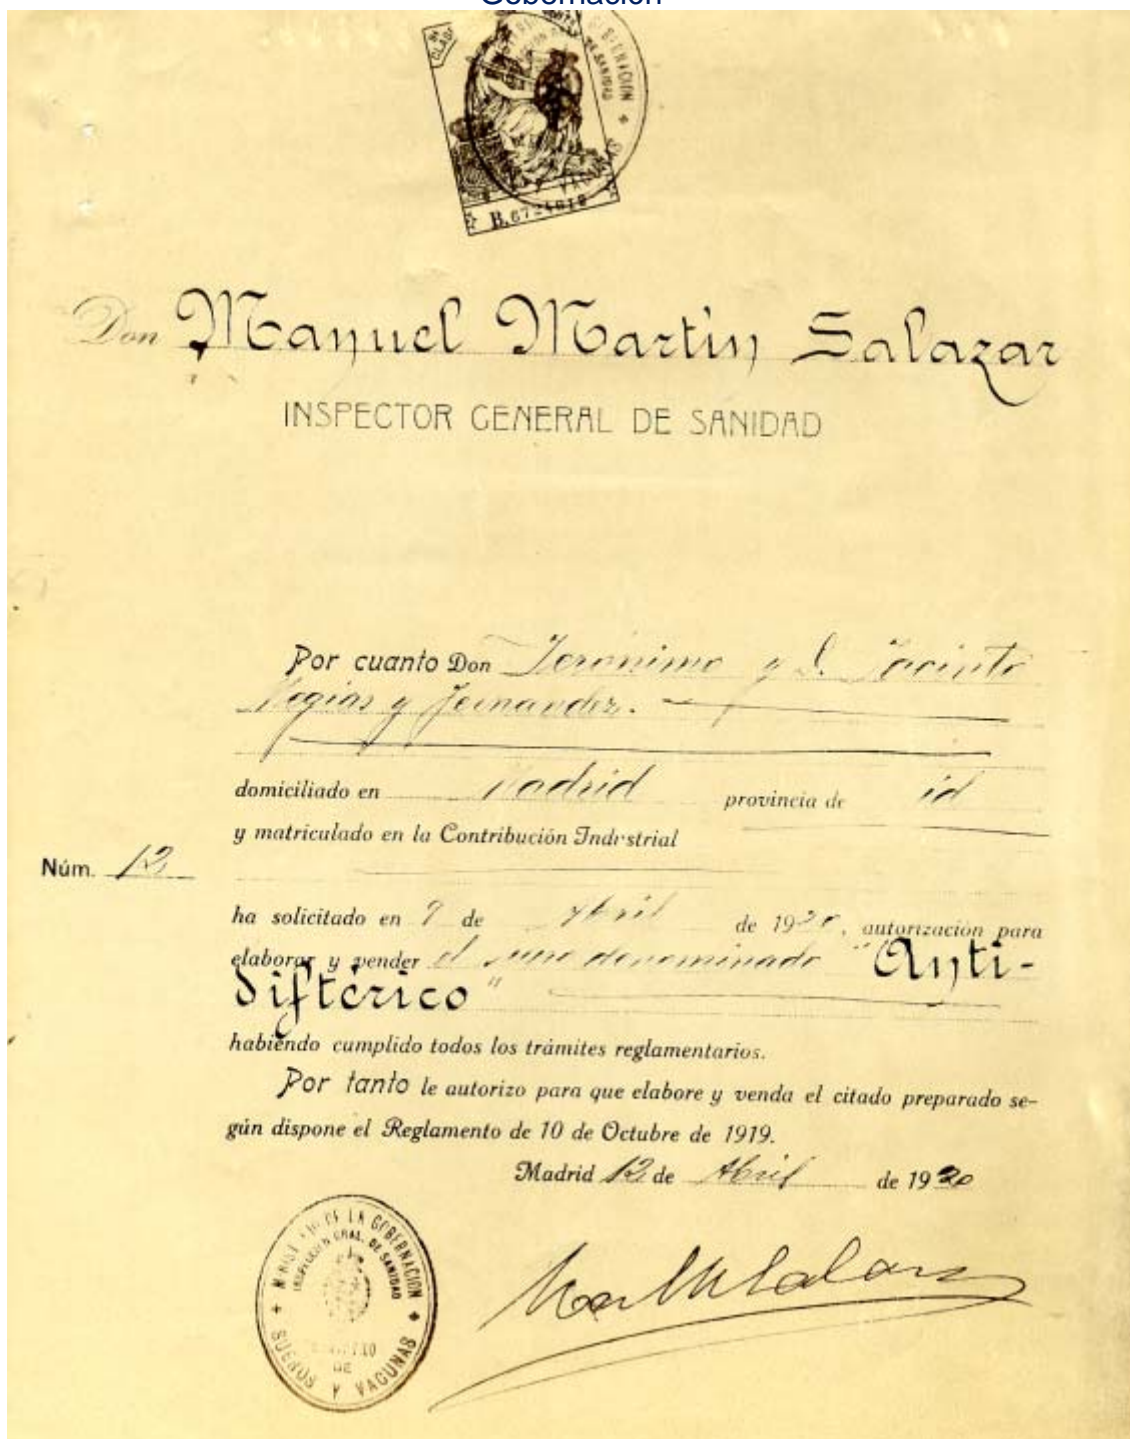 Gobernación
B.6724618
Don Manuel Martin Salazar
INSPECTOR GENERAL DE SANIDAD
Por cuanto Don Jeronimo y D. Jacinto
Megias y Fernandez.
domiciliado en Madrid provincia de id
y matriculado en la Contribución Industrial
Núm. 12
ha solicitado en 9 de Abril de 1920, autorización para
elaborar y vender el suero denominado "Anti-
diftérico"
habiendo cumplido todos los trámites reglamentarios.
Por tanto le autorizo para que elabore y venda el citado preparado se-
gún dispone el Reglamento de 10 de Octubre de 1919.
Madrid 12 de Abril de 1920
MINISTERIO DE LA GOBERNACIÓN
INSPECCION GRAL. DE SANIDAD
DE
SUEROS Y VACUNAS